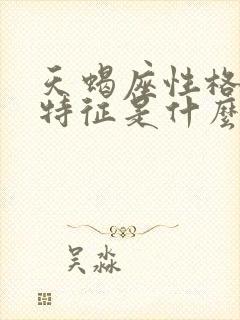 天蝎座性格
特征是什麼
吴淼